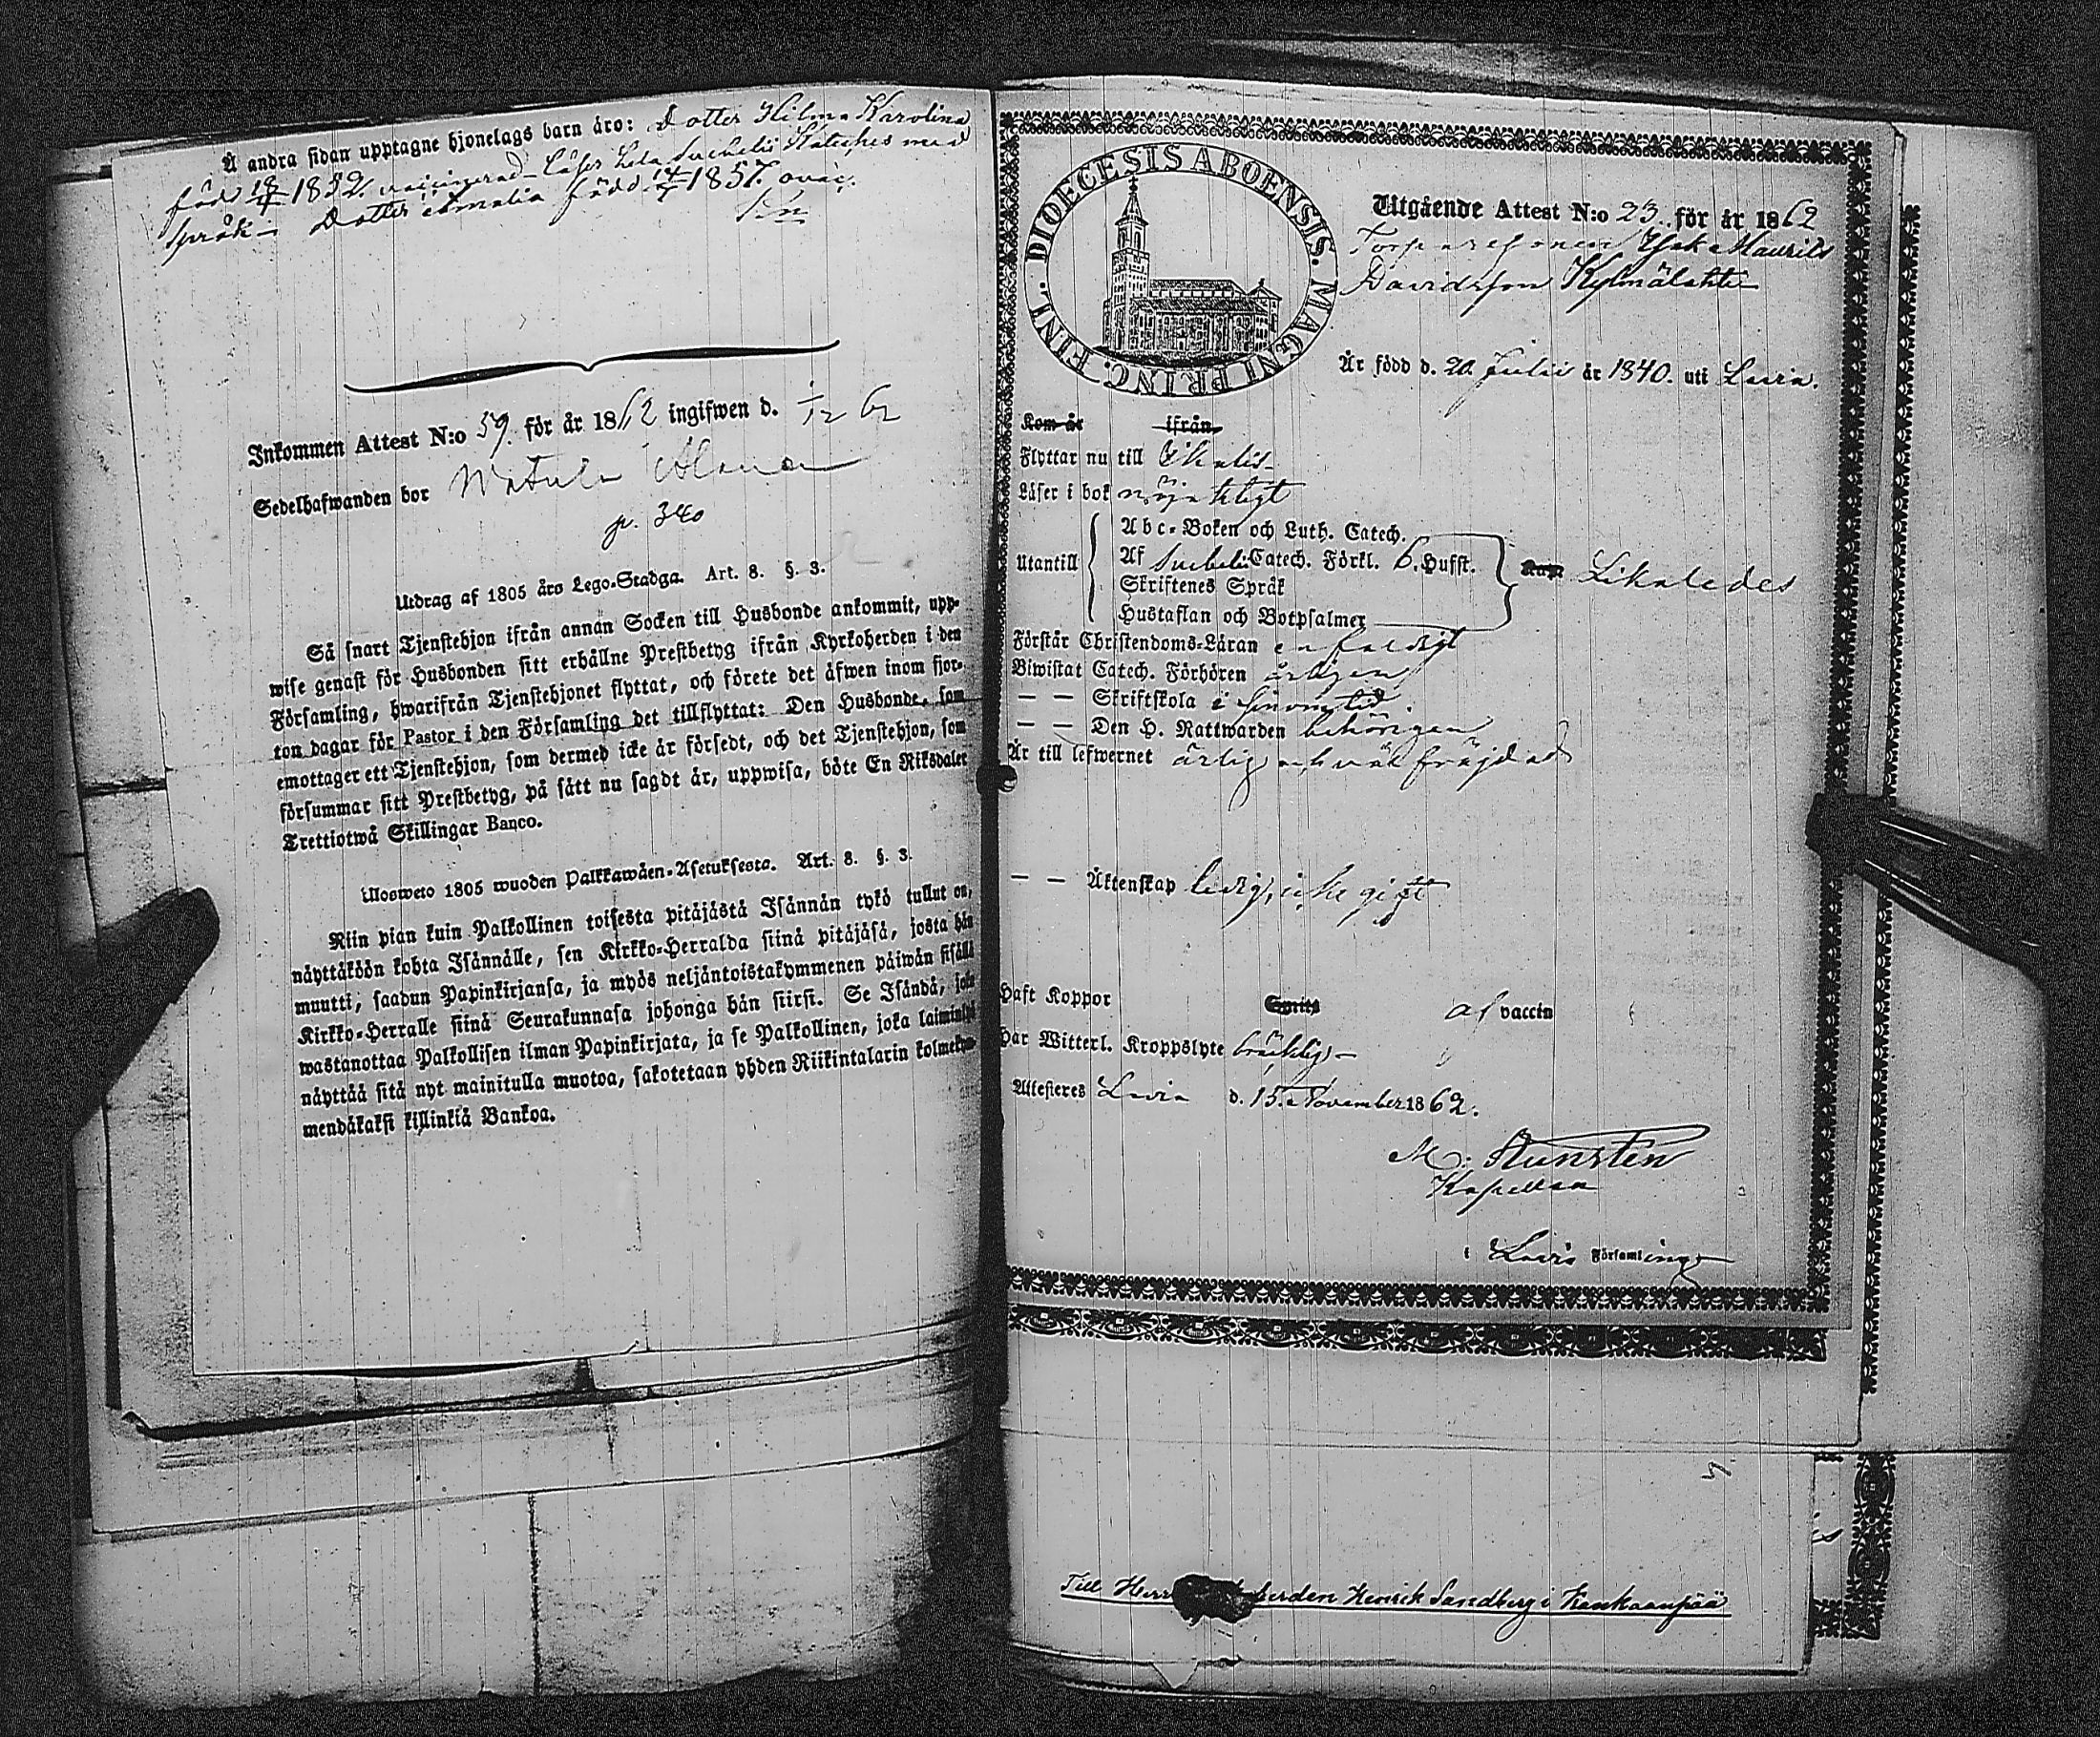 Å andra sidan upptagne hjonelags barn äro: Dotter Hilma Karolina
född 18/4 1852, vaccinerad. Läser hela Svebelii Kateches med
språk - Dotter Amalia född 14/7 1857. ovac.
Inkommen Attest N:o 59. för år 1862 ingifwen d. 1/12 62
Sedelhafwanden bor
p. 340
Utdrag af 1805 års Lego-Stadga. Art. 8. §. 3.
Så snart Tjenstehjon ifrån annan Socken till Husbonde ankommit, upp-
wise genast för Husbonden sitt erhållne Prestbetyg ifrån Kyrkoherden i den
Församling, hwarifrån Tjenstehjonet flyttat, och förete det äfwen inom fjor-
ton dagar för Pastor i den Församling det tillflyttat: Den Husbonde, som
emottager ett Tjenstehjon, som dermed icke är försedt, och det Tjenstehjon, som
försummar sitt Prestbetyg, på sätt nu sagdt är, uppwisa, böte En Riksdaler
Trettiotwå Skillingar Banco.
Ulosweto 1805 wuoden Palkkawäen-Asetuksesta. Art. 8. §. 3.
Niin pian kuin Palkollinen toisesta pitäjästä Isännän tykö tullut on,
näyttäköön kohta Isännälle, sen Kirkko-Herralda siinä pitäjäsä, josta hän
muutti, saadun Papinkirjansa, ja myös neljäntoistakymmenen päiwän sisällä
Kirkko-Herralle siinä Seurakunnasa johonga hän siirsi. Se Isändä, joka
wastanottaa Palkollisen ilman Papinkirjata, ja se Palkollinen, joka laiminlyö
näyttää sitä nyt mainitulla muotoa, sakotetaan yhden Riikintalarin kolmekym-
mendäkaksi killinkiä Bankoa.
DIOECESIS ABOENSIS. MAGNI PRINC. FINL.
Utgående Attest N:o 23. för år 1862
Torparesonen Isak Maurits
Davidsson Kylmälahti
Är född d. 20 Julii år 1840. uti Lavia.
Kom år ifrån
Flyttar nu till Ikalis
Läser i bok nöjaktligt
Utantill
Abc-Boken och Luth. Catech.
Af Svebelii Catech. Förkl. 6. Hufst.
Skriftenes Språk
Hustaflan och Botpsalmer
Likaledes
Förstår Christendoms-Läran enfaldigt
Biwistat Catech. Förhören årligen
— — Skriftskola i sinom tid
— — Den H. Nattwarden behörigen
Är till lefwernet ärlig och väl fräjdad
— — Äktenskap ledig, icke gift
Haft Koppor af vaccin
Har Witterl. Kroppslyte bräcklig
Attesteres Lavia d. 15. November 1862.
M. Stunsten
Kapellan
i Lavia Församling
59.
Till Herr Kyrkoherden Henrik Sandberg i Kankaanpää